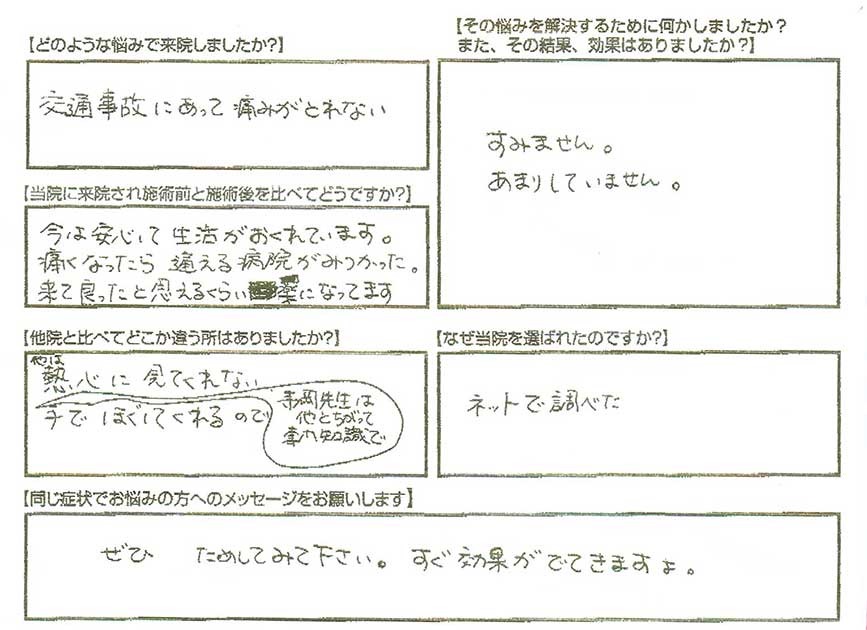 【どのような悩みで来院しましたか?】
交通事故にあって痛みがとれない
【その悩みを解決するために何かしましたか?
また、その結果、効果はありましたか?】
すみません。
あまりしていません。
【当院に来院され施術前と施術後を比べてどうですか?】
今は安心して生活がおくれています。
痛くなったら通える病院がみつかった。
来て良ったと思えるくらい楽になってます
【他院と比べてどこか違う所はありましたか?】
他は
熱心に見てくれない
寺岡先生は
他とちがって
専門知識で
手でほぐしてくれるので
【なぜ当院を選ばれたのですか?】
ネットで調べた
【同じ症状でお悩みの方へのメッセージをお願いします】
ぜひ ためしてみて下さい。すぐ効果がでてきますょ。